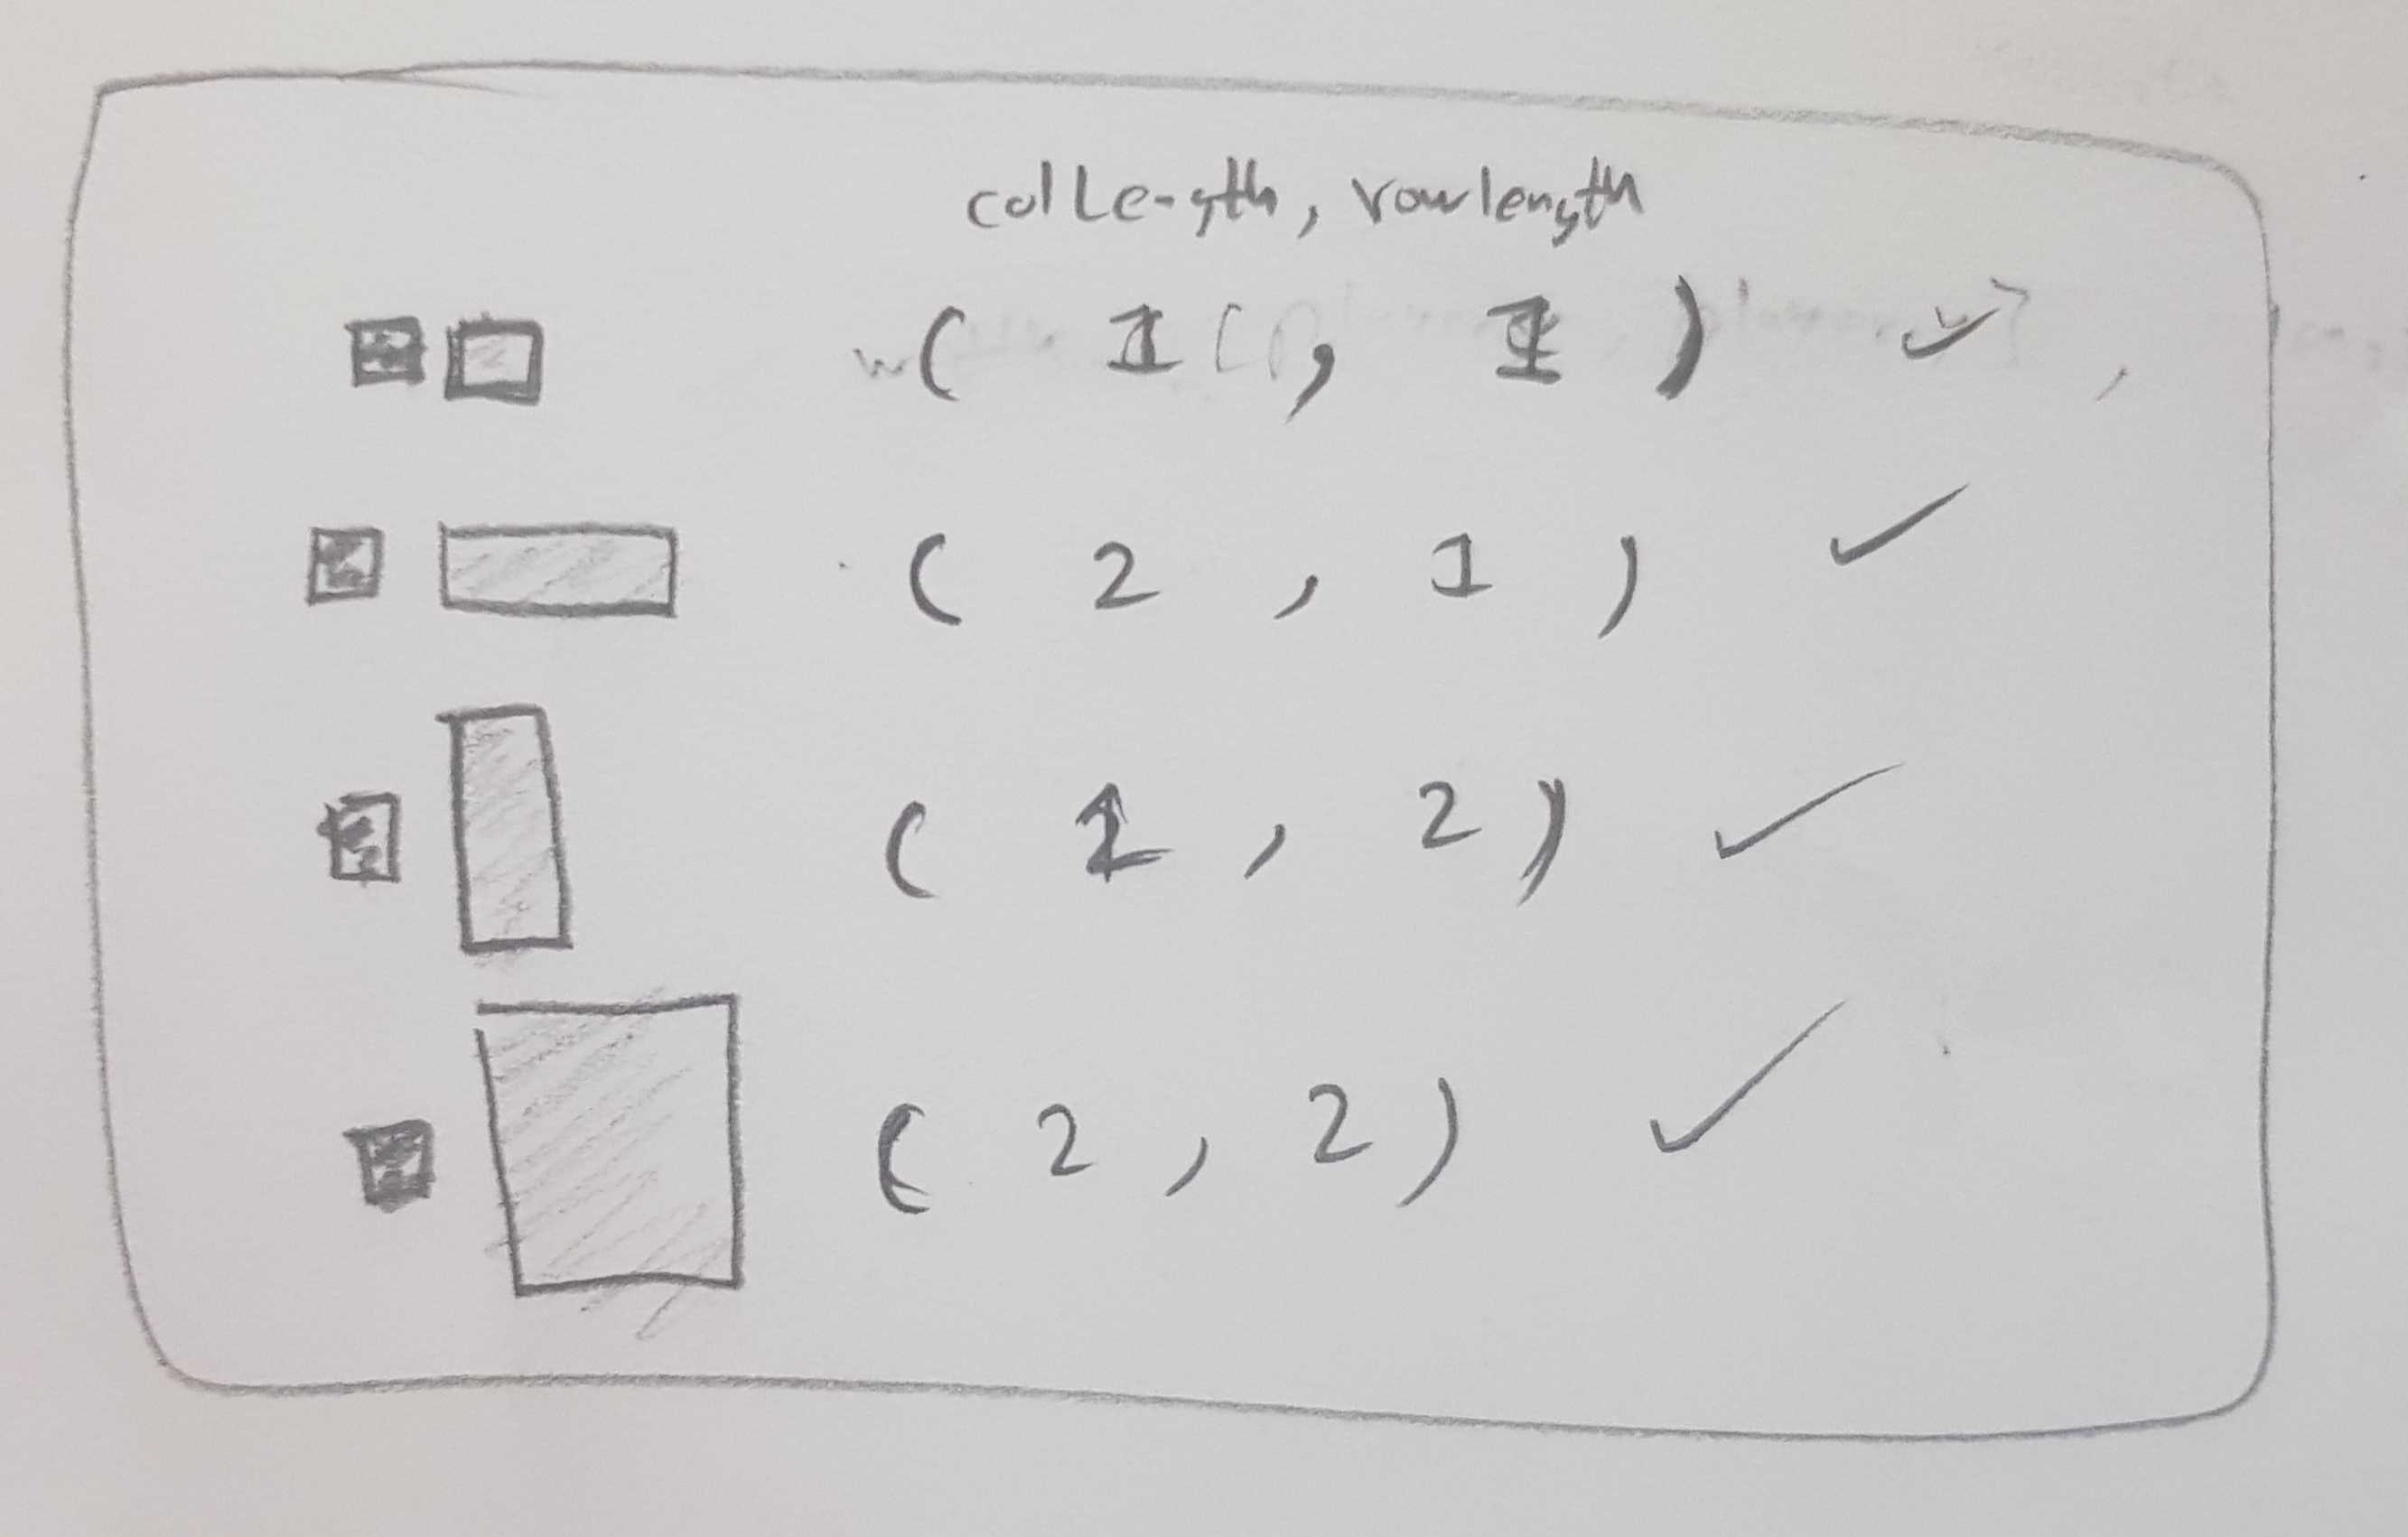 colLength, rowlength
( 1 , 1 ) ✓
( 2 , 1 ) ✓
( 1 , 2 ) ✓
( 2 , 2 ) ✓